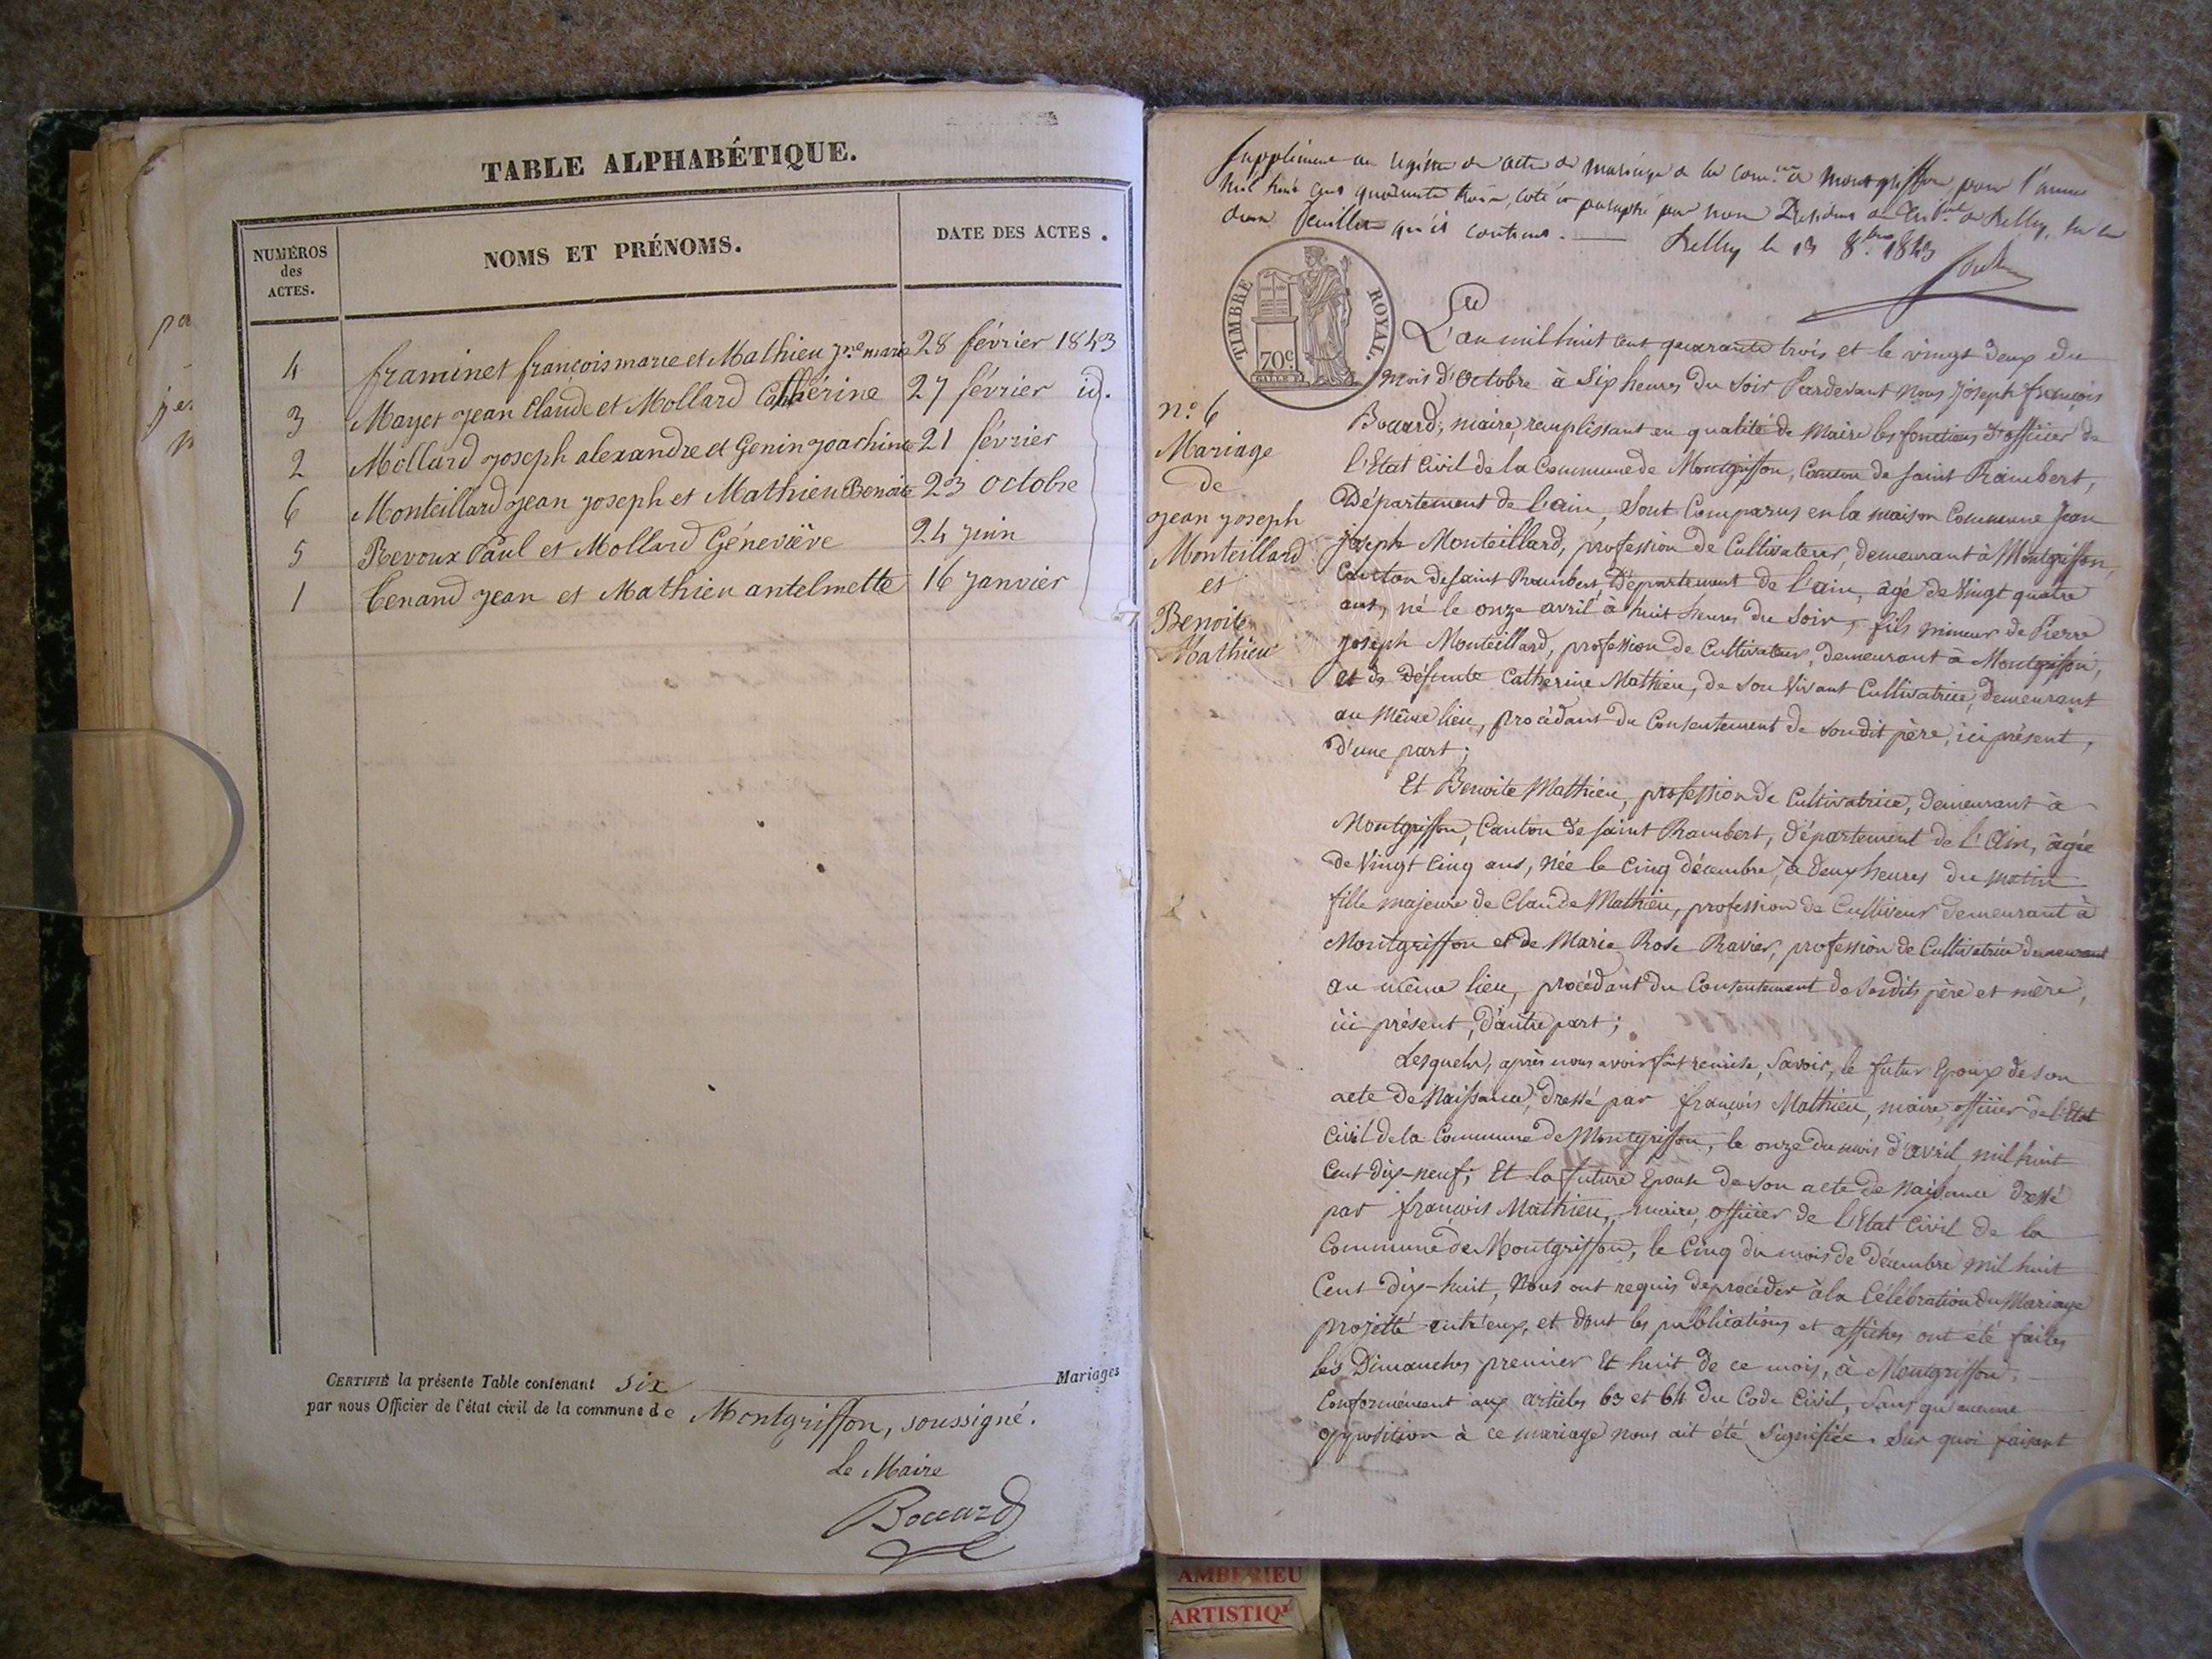 TABLE ALPHABÉTIQUE.
NUMÉROS
des
ACTES.
NOMS ET PRÉNOMS.
DATE DES ACTES.
4 framinet françois marie et Mathieu jne marie 28 février 1843
3 Mayet jean Claude et Mollard Cathérine 27 février id.
2 Mollard joseph alexandre et Genin joachime 21 février
6 Monteillard jean joseph et Mathieu Benoite 23 octobre
5 Revoux Paul et Mollard Géneviève 24 juin
1 Tenand jean et Mathieu antelmette 16 janvier
CERTIFIÉ la présente Table contenant six Mariages
par nous Officier de l'état civil de la commune de Montgriffon, soussigné.
Le Maire
Boccard
Supplément au registre de actes de mariage de la com.ne de Montgriffon, pour l'année
mil huit cent quarante trois, coté et paraphé par nous Président du Trib.al de Belley, sur les
deux feuillets qu'il contient. — Belley le 13 8bre 1843
TIMBRE ROYAL.
70c.
L'an mil huit cent quarante trois et le vingt deux du
mois d'Octobre à Six heures du Soir Pardevant Nous Joseph françois
Boccard, maire, remplissant en qualité de Maire les fonctions d'officier de
l'Etat Civil de la Commune de Montgriffon, Canton de Saint Rambert,
Département de l'ain, Sont Comparus en la maison Commune Jean
joseph Monteillard, profession de Cultivateur, demeurant à Montgriffon,
Canton de Saint Rambert, Département de l'ain, agé de Vingt quatre
ans, né le onze avril à huit heures du Soir, fils mineur de Pierre
joseph Monteillard, profession de Cultivateur, demeurant à Montgriffon,
et de Défunte Catherine Mathieu, de son Vivant Cultivatrice, Demeurant
au Même lieu, procédant du Consentement de son dit père, ici présent,
d'une part;
n.o 6
Mariage
de
jean joseph
Monteillard
et
Benoite
Mathieu
Et Benoite Mathieu, profession de Cultivatrice, demeurant à
Montgriffon, Canton de Saint Rambert, Département de l'Ain, âgée
de Vingt Cinq ans, née le Cinq décembre, à deux heures du matin
fille majeure de Claude Mathieu, profession de Cultiveur demeurant à
Montgriffon et de Marie Rose Ravier, profession de Cultivatrice demeurant
au même lieu, procédant du Consentement de Sesdits père et mère,
ici présent, d'autre part;
Lesquels, après nous avoir fait remise, Savoir, le futur Epoux de son
acte de Naissance, dressé par françois Mathieu, maire, officier de l'Etat
Civil de la Commune de Montgriffon, le onze du mois d'avril mil huit
Cent dix-neuf; Et la future Epouse de son acte de Naissance dressé
par françois Mathieu, maire, officier de l'Etat Civil de la
Commune de Montgriffon, le Cinq du mois de Décembre mil huit
Cent dix-huit, Nous ont requis de procéder à la Célébration du Mariage
projetté entr'eux, et dont les publications et affiches ont été faites
les Dimanches premier Et huit de ce mois, à Montgriffon,
Conformément aux articles 63 et 64 du Code Civil, Sans qu'aucune
opposition à ce mariage nous ait été Signifiée. Sur quoi faisant
AMBERIEU
ARTISTIQ